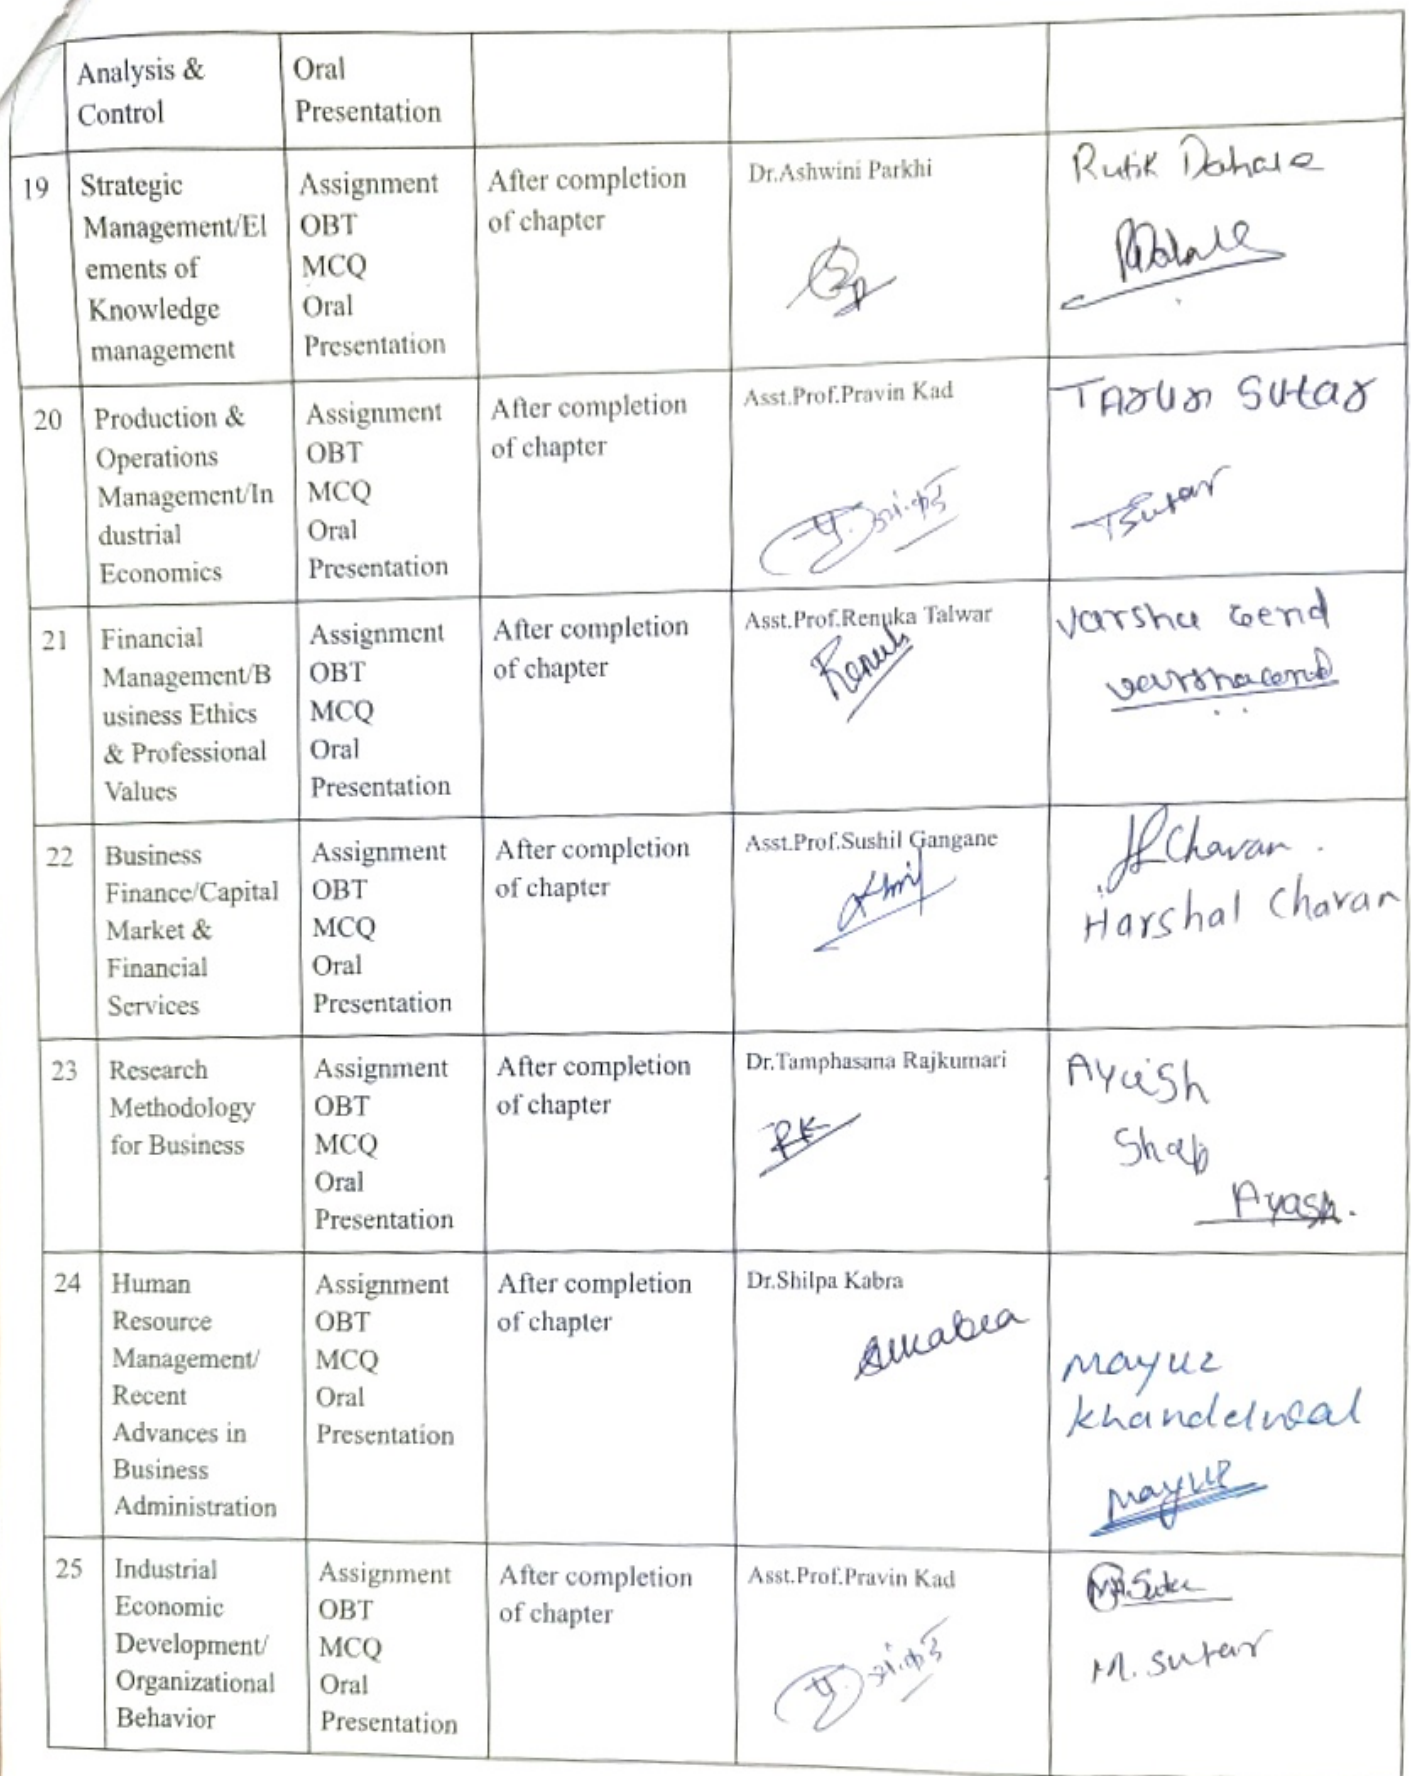 Analysis &
Control
Oral
Presentation
19
Strategic
Management/El
ements of
Knowledge
management
Assignment
OBT
MCQ
Oral
Presentation
After completion
of chapter
Dr.Ashwini Parkhi
Rutik Dahale
20
Production &
Operations
Management/In
dustrial
Economics
Assignment
OBT
MCQ
Oral
Presentation
After completion
of chapter
Asst.Prof.Pravin Kad
Tarun Sutar
TSutar
21
Financial
Management/B
usiness Ethics
& Professional
Values
Assignment
OBT
MCQ
Oral
Presentation
After completion
of chapter
Asst.Prof.Renuka Talwar
Varsha Gend
22
Business
Finance/Capital
Market &
Financial
Services
Assignment
OBT
MCQ
Oral
Presentation
After completion
of chapter
Asst.Prof.Sushil Gangane
Chavan
Harshal Chavan
23
Research
Methodology
for Business
Assignment
OBT
MCQ
Oral
Presentation
After completion
of chapter
Dr.Tamphasana Rajkumari
RK
Ayush
24
Human
Resource
Management/
Recent
Advances in
Business
Administration
Assignment
OBT
MCQ
Oral
Presentation
After completion
of chapter
Dr.Shilpa Kabra
Mayur
Khandelwal
Mayur
25
Industrial
Economic
Development/
Organizational
Behavior
Assignment
OBT
MCQ
Oral
Presentation
After completion
of chapter
Asst.Prof.Pravin Kad
M. Sutar